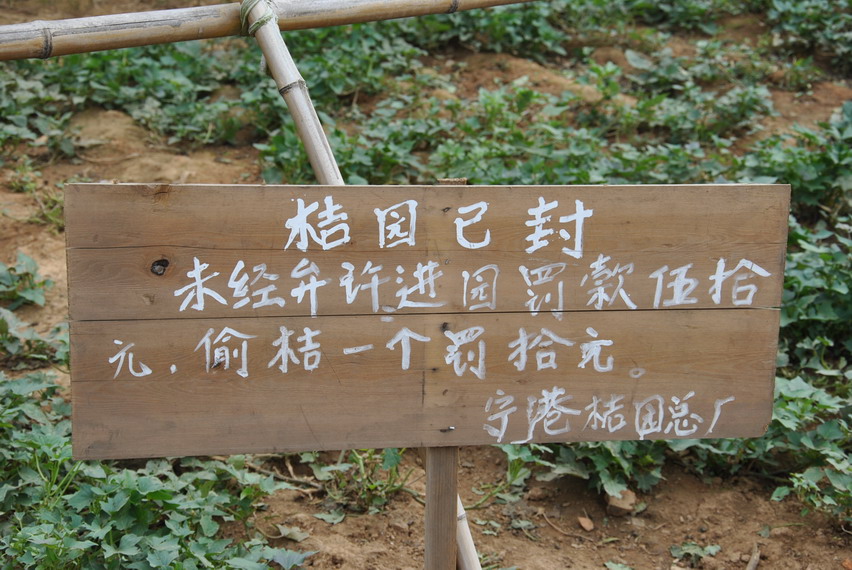 桔园已封
未经弁许进园罚款伍拾
元，偷桔一个罚拾元。
宁港桔园总厂